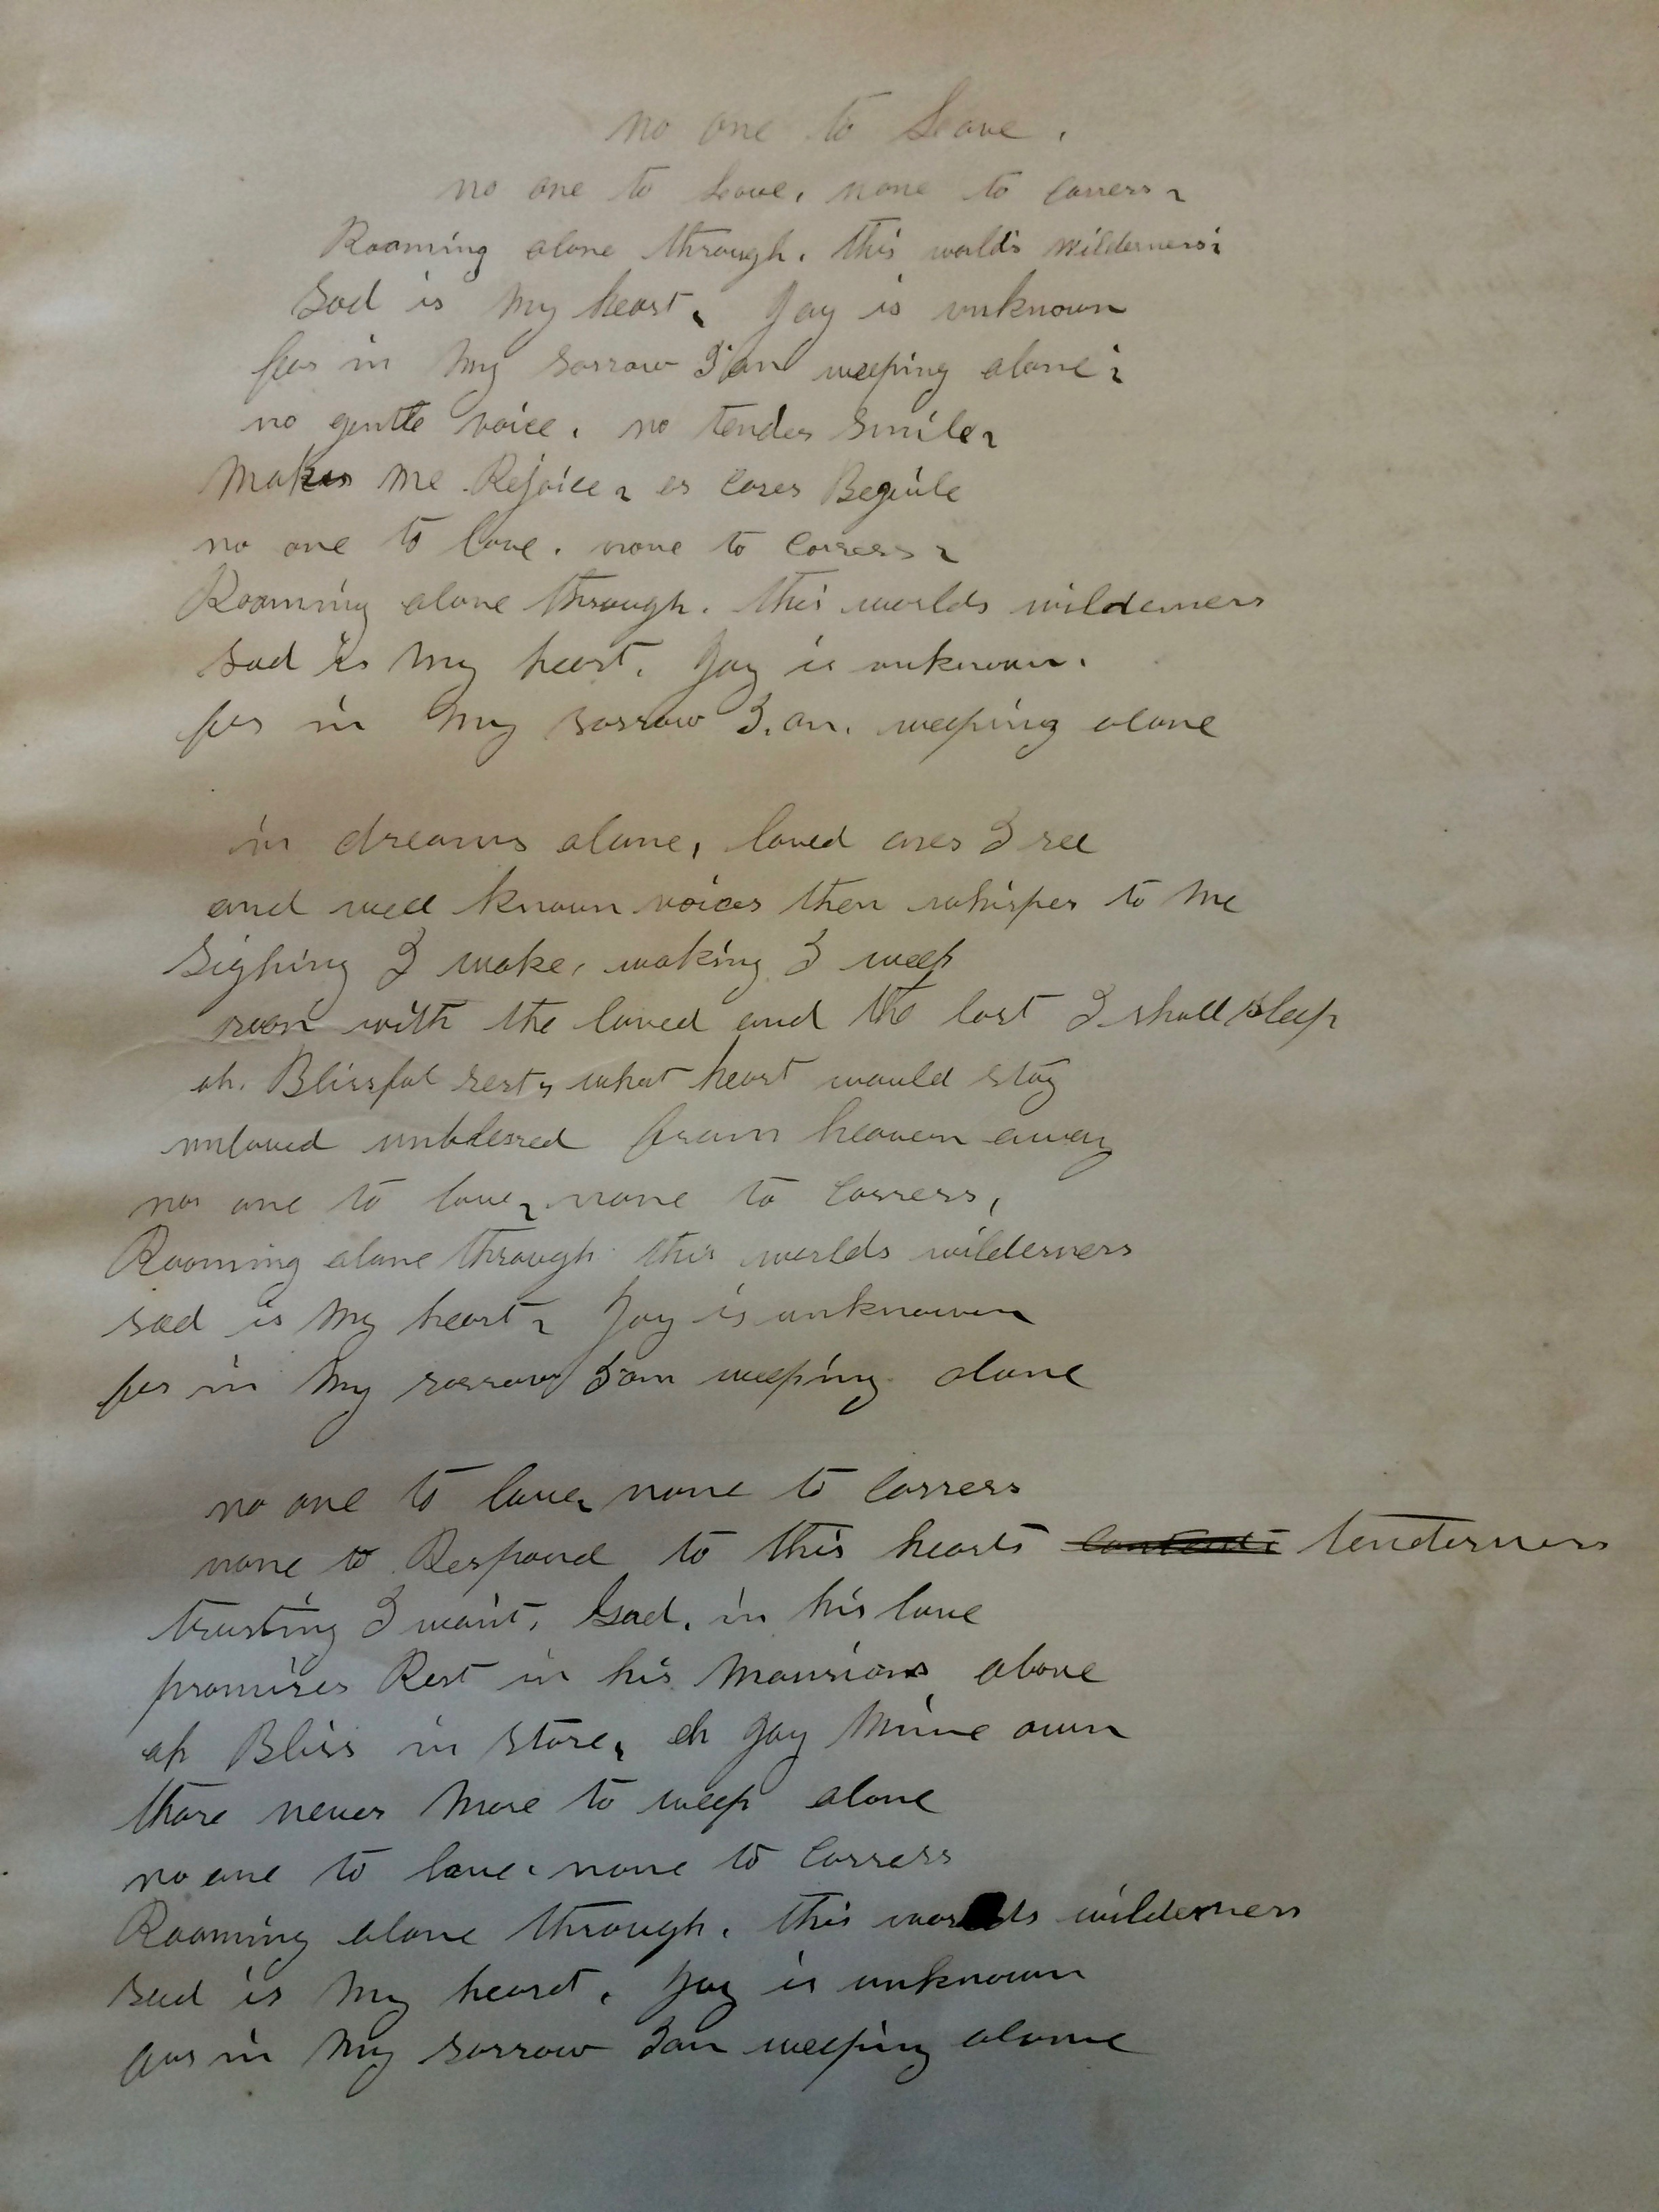 no one to Love.
no one to Love, none to carress,
Roaming alone through. this worlds wilderness;
Sad is my heart, Joy is unknown
for in my sorrow I'am weeping alone;
no gentle voice, no tender smile,
Makes me Rejoice, or cares Beguile
no one to love, none to carress,
Roaming alone through. this worlds wilderness
sad is my heart, Joy is unknown.
for in my sorrow I.am. weeping alone
in dreams alone, loved ones I see
and well known voices then whisper to me
Sighing I wake, waking I weep
soon with the loved and the lost I shall sleep
oh. Blissful rest, what heart would stay
unloved unblessed from heaven away
no one to love, none to carress,
Roaming alone through this worlds wilderness
sad is my heart, Joy is unknown
for in my sorrow I am weeping alone
no one to love, none to carress
none to Respond to this hearts tenderness
trusting I wait, God, in his love
promises Rest in his Mansions above
oh Bliss in store, oh Joy Mine own
thare never More to weep alone
no one to love, none to carress
Roaming alone through, this worlds wilderness
sad is my heart, Joy is unknown
for in my sorrow I am weeping alone